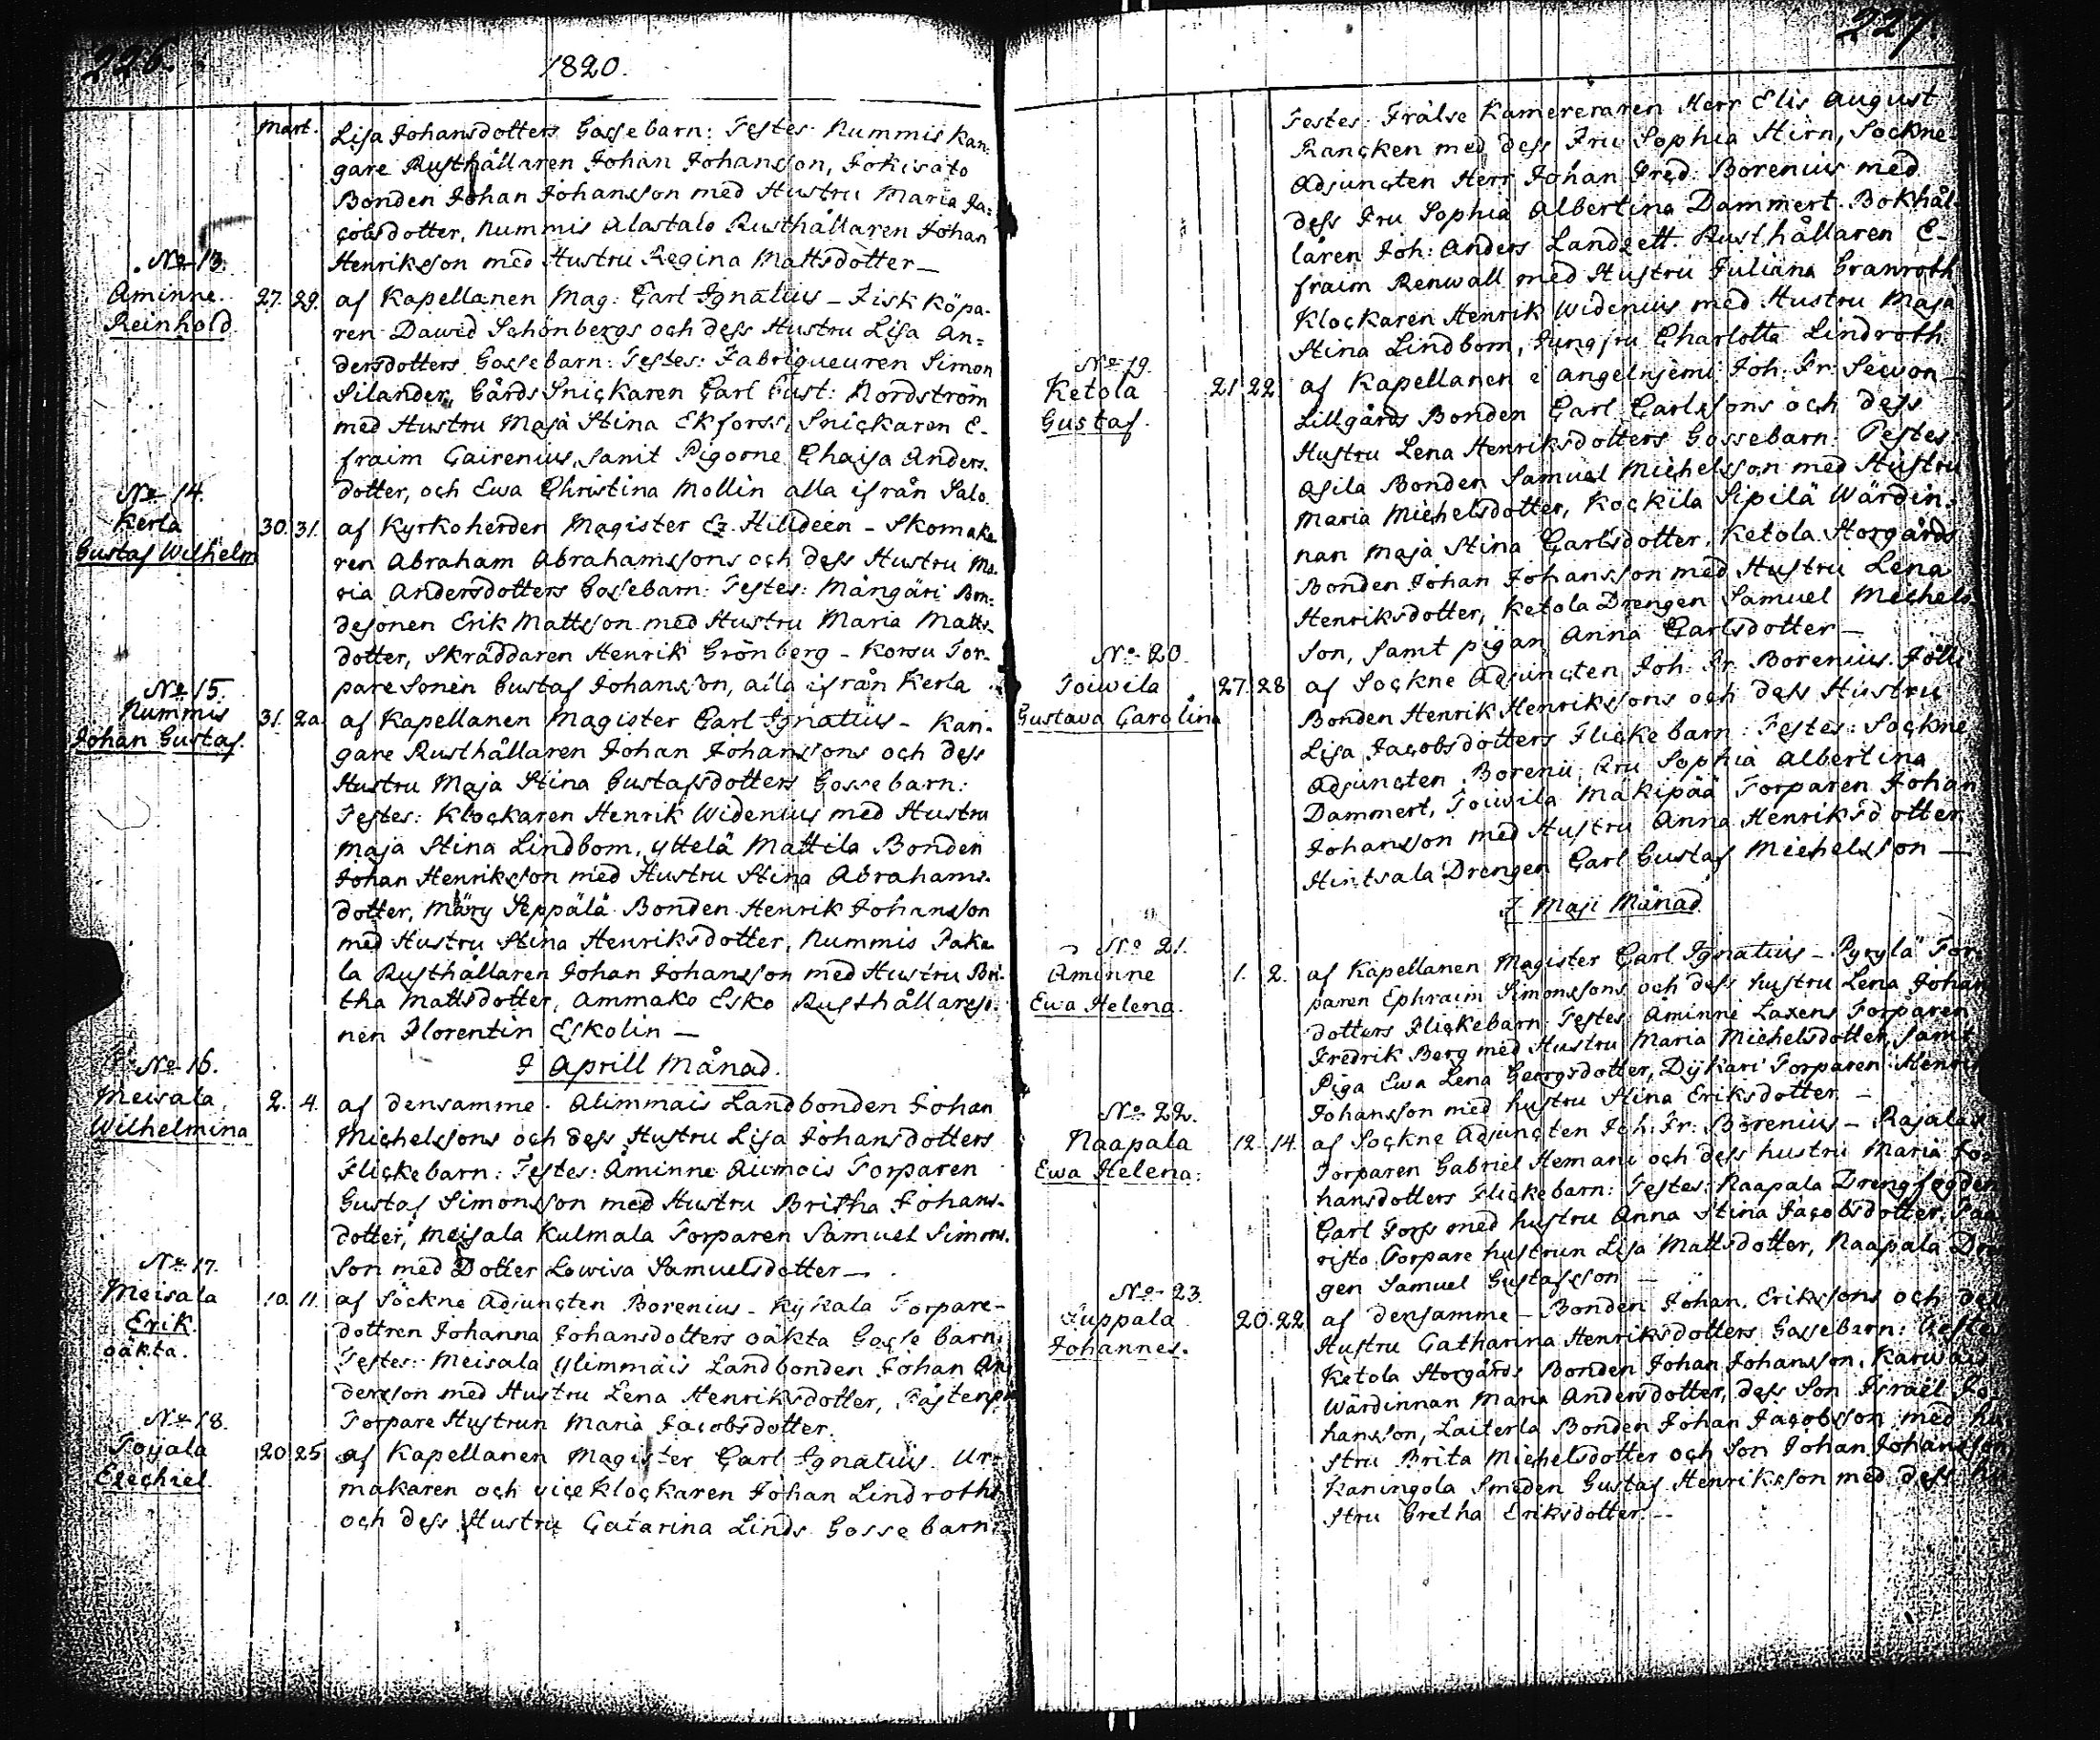 226.
1820.
Mart.
Lisa Johansdotters Gossebarn: Testes Nummis Kan-
gare Rusthållaren Johan Johansson, Jokisato
Bonden Johan Johansson med Hustru Maria Ja-
cobsdotter, Nummis Alastalo Rusthållaren Johan
Henriksson med Hustru Regina Mattsdotter—
No 13.
Åminne
Reinhold
27. 29. af Kapellanen Mag: Carl Ignatius – Fisk Köpa-
ren David Schönbergs och dess Hustru Lisa An-
dersdotters Gossebarn: Testes: Fabriqueuren Simon
Silander, Gårds Snickaren Carl Gust: Nordström
med Hustru Maja Stina Ekforss, Snickaren E-
fraim Cairenius, samt Pigorne Chaisa Anders-
dotter, och Ewa Christina Mollin alla ifrån Salo.
No 14.
Kerla
Gustaf Wilhelm
30. 31. af Kyrkoherden Magister Ez. Hilldeen – Skomaka-
ren Abraham Abrahamssons och dess Hustru Ma-
ria Andersdotters Gossebarn: Testes: Mångäri Bon-
desonen Erik Mattsson med Hustru Maria Matts-
dotter, Skräddaren Henrik Grönberg – Korsu Tor-
pare Sonen Gustaf Johansson, alla ifrån Kerla
No 15.
Nummis
Johan Gustaf.
31. 2a af Kapellanen Magister Carl Ignatius – Kan-
gare Rusthållaren Johan Johanssons och dess
Hustru Maja Stina Gustafsdotters Gossebarn:
Testes: Klockaren Henrik Widenius med Hustru
Maja Stina Lindbom, Yttelä Mattila Bonden
Johan Henriksson med Hustru Stina Abrahams-
dotter, Märy Seppälä Bonden Henrik Johansson
med Hustru Stina Henriksdotter, Nummis Paka-
la Rusthållaren Johan Johansson med Hustru Bri-
tha Mattsdotter, Ammako Esko Rusthållareso-
nen Florentin Eskolin —
I Aprill Månad.
No 16.
Meisala
Wilhelmina
2. 4. af densamme. Alimmais Landbonden Johan
Michelssons och dess Hustru Lisa Johansdotters
Flickebarn: Testes: Åminne Aumois Torparen
Gustaf Simonsson med Hustru Britha Johans-
dotter, Meisala Kulmala Torparen Samuel Simons-
son med Dotter Lovisa Samuelsdotter—.
No 17.
Meisala
Erik.
oäkta.
10. 11. af Sockne Adjuncten Borenius – Kykala Torpare-
dottren Johanna Johansdotters oäkta Gosse barn:
Testes: Meisala Ylimmäis Landbonden Johan An-
dersson med Hustru Lena Henriksdotter,
Torpare Hustrun Maria Jacobsdotter.
No 18.
Toyala
Ezechiel.
20 25 af Kapellanen Magister Carl Ignatius. Ur-
makaren och vice Klockaren Johan Lindroths
och dess Hustru Catarina Linds Gosse barn:
227.
Testes: Frälse Kamereraren Herr Elis August
Rancken med dess Fru Sophia Hirn, Sockne-
Adjuncten Herr Johan Fred: Borenius med
dess Fru Sophia Albertina Dammert. Bokhål-
laren Joh: Anders Landzett. Rusthållaren E-
fraim Renwall med Hustru Juliana Granroth
Klockaren Henrik Widenius med Hustru Maja
Stina Lindbom, Jungfru Charlotta Lindroth
No 19.
Ketola
Gustaf.
21 22 af Kapellanen i Angelnjemi Joh. Fr: Sevon—
Lillgårds Bonden Carl Carlssons och dess
Hustru Lena Henriksdotters Gossebarn. Testes:
Asila Bonden Samuel Michelsson med Hustru
Maria Michelsdotter, Kockila Sipilä Wärdin-
nan Maja Stina Carlsdotter, Ketola Storgårds
Bonden Johan Johansson med Hustru Lena
Henriksdotter, Ketola Drengen Samuel Michels-
son, samt pigan Anna Carlsdotter—
No 20.
Toiwila
Gustava Carolina
27. 28 af Sockne Adjuncten Joh. Fr. Borenius. Jölli
Bonden Henrik Henrikssons och dess Hustru
Lisa Jacobsdotters Flickebarn: Testes: Sockne
Adjuncten Borenii Fru Sophia Albertina
Dammert, Toiwila Mäkipää Torparen Johan
Johansson med Hustru Anna Henriksdotter
Hintsala Drengen Carl Gustaf Michelsson—
I Maji Månad
No 21.
Åminne
Ewa Helena.
1. 2. af Kapellanen Magister Carl Ignatius – Pyrylä Tor-
paren Ephraim Simonssons och dess hustru Lena Johans-
dotters Flickebarn. Testes: Åminne Laxens Torparen
Fredrik Berg med Hustru Maria Michelsdotter, samt
Piga Ewa Lena Georgsdotter, Dykari Torparen Henrik
Johansson med hustru Stina Eriksdotter —
No 22.
Naapala
Ewa Helena.
12. 14. af Sockne Adjuncten Joh: Fr: Borenius – Rajalax
Torparen Gabriel Hemans och dess hustru Maria Jo-
hansdotters Flickebarn: Testes: Naapala Drengfogden
Carl Forss med hustru Anna Stina Jacobsdotter, Saa-
risto Torpare hustrun Lisa Mattsdotter, Naapala Dren-
gen Samuel Gustafsson —
No 23.
Juppala
Johannes.
20. 22 af densamme – Bonden Johan Erikssons och dess
Hustru Catharina Henriksdotters Gossebarn: Testes
Ketola Storgårds Bonden Johan Johansson. Karwais
Wärdinnan Maria Andersdotter, dess Son Israel Jo-
hansson, Laiterla Bonden Johan Jacobsson med hu-
stru Brita Michelsdotter och Son Johan Johansson
Kaningola Smeden Gustaf Henriksson med dess hu-
stru Gretha Eriksdotter. —